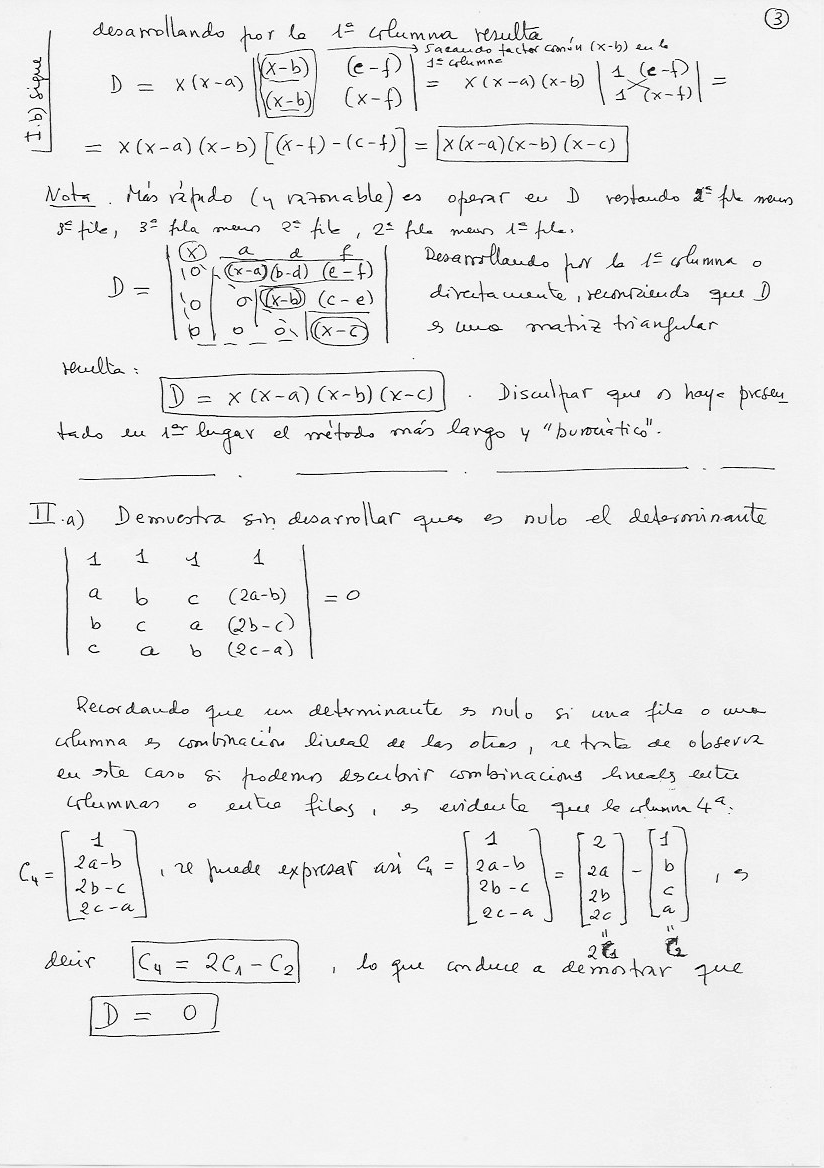 3
I.b) sigue
desarrollando por la 1ª columna resulta
Sacando factor común (x-b) en la
1ª columna
D = x(x-a) | (x-b) (e-f) | = x(x-a)(x-b) | 1 (e-f) | =
| (x-b) (x-f) | | 1 (x-f) |
= x(x-a)(x-b) [(x-f)-(c-f)] = x(x-a)(x-b)(x-c)
Nota. Más rápido (y razonable) es operar en D restando 4ª fila menos
3ª fila, 3ª fila menos 2ª fila, 2ª fila menos 1ª fila.
x a d f
D = 0 (x-a) (b-d) (e-f)
0 0 (x-b) (c-e)
0 0 0 (x-c)
Desarrollando por la 1ª columna o
directamente, reconociendo que D
es una matriz triangular
resulta:
D = x(x-a)(x-b)(x-c) . Disculpar que os haya presen
tado en 1er lugar el método más largo y "burocrático".
II.a) Demuestra sin desarrollar ques es nulo el determinante
1 1 1 1
a b c (2a-b) = 0
b c a (2b-c)
c a b (2c-a)
Recordando que un determinante es nulo si una fila o una
columna es combinación lineal de las otras, se trata de observar
en este caso si podemos descubrir combinaciones lineales entre
columnas o entre filas, es evidente que la columna 4ª.
C4 = [1 2a-b 2b-c 2c-a] , se puede expresar así C4 = [1 2a-b 2b-c 2c-a] = [2 2a 2b 2c] - [1 b c a] , es
= =
2C1 C2
decir C4 = 2C1 - C2 , lo que conduce a demostrar que
D = 0